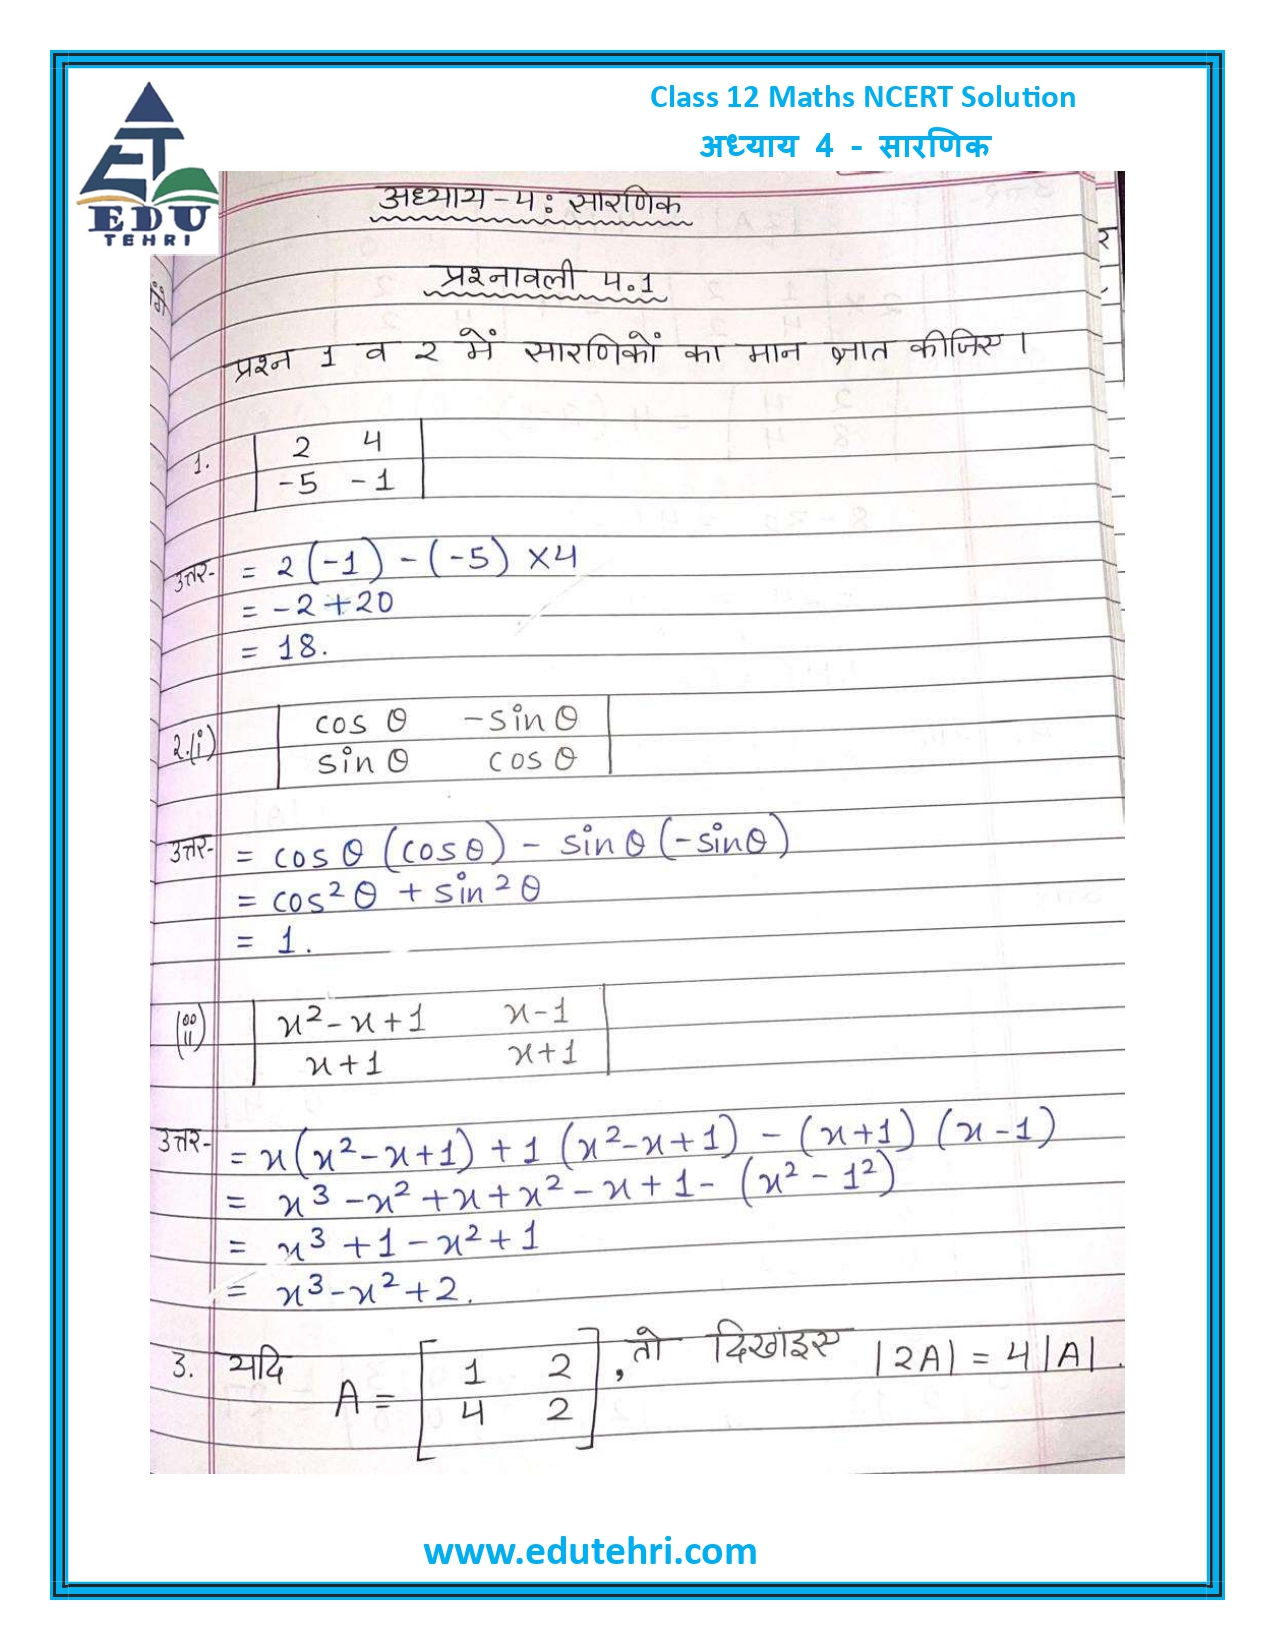 Class 12 Maths NCERT Solution
अध्याय 4 - सारणिक
EDU
TEHRI
अध्याय-4: सारणिक
प्रश्नावली 4.1
प्रश्न 1 व 2 में सारणिकों का मान ज्ञात कीजिए।
1. | 2 4 |
| -5 -1 |
उत्तर- = 2(-1) - (-5) ×4
= -2+20
= 18.
2.(i) | cos θ -sin θ |
| sin θ cos θ |
उत्तर- = cos θ (cos θ) - sin θ (-sin θ)
= cos² θ + sin² θ
= 1.
(ii) | x²-x+1 x-1 |
| x+1 x+1 |
उत्तर- = x(x²-x+1) +1 (x²-x+1) - (x+1) (x-1)
= x³ -x² +x+x² -x+1- (x² - 1²)
= x³ +1-x²+1
= x³-x²+2.
3. यदि A = [ 1 2 ], तो दिखाइए |2A| = 4|A|.
[ 4 2 ]
www.edutehri.com